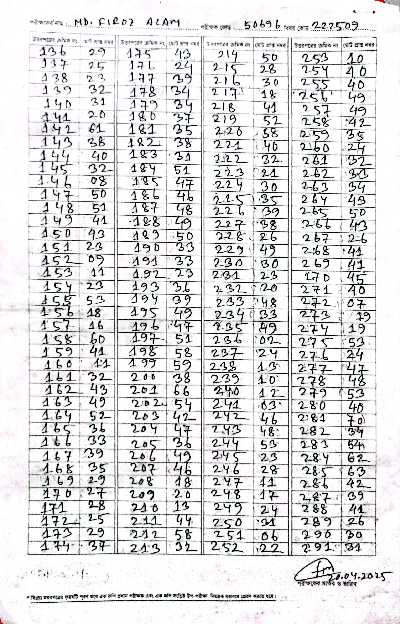 পরীক্ষকের নাম : MD. FIROZ ALAM পরীক্ষক কোড : 50696 বিষয় কোড : 222509
উত্তরপত্রের ক্রমিক নং মোট প্রাপ্ত নম্বর উত্তরপত্রের ক্রমিক নং মোট প্রাপ্ত নম্বর উত্তরপত্রের ক্রমিক নং মোট প্রাপ্ত নম্বর উত্তরপত্রের ক্রমিক নং মোট প্রাপ্ত নম্বর
136 29 175 43 214 50 253 10
137 25 171 24 215 28 254 40
138 23 177 39 216 30 255 40
139 32 178 34 217 18 256 49
140 31 179 34 218 41 257 49
141 20 180 37 219 52 258 42
142 61 181 35 220 58 259 35
143 38 182 38 221 40 260 24
144 40 183 31 222 32 261 32
145 32 184 51 223 21 262 33
146 08 185 47 224 30 263 34
147 50 186 46 225 35 264 43
148 51 187 48 226 39 265 50
149 41 188 49 227 38 266 43
150 43 189 50 228 26 267 26
151 23 190 33 229 49 268 41
152 09 191 33 230 30 269 41
153 11 192 23 231 23 170 45
154 23 193 36 232 20 271 40
155 53 194 39 233 48 272 07
156 18 195 49 234 33 273 19
157 16 196 47 235 49 274 19
158 60 197 51 236 02 275 53
159 41 198 58 237 24 276 24
160 11 199 59 238 13 277 47
161 32 200 38 239 10 278 48
162 43 201 66 240 12 279 53
163 49 202 54 241 03 280 40
164 52 203 42 242 46 281 70
165 36 204 47 243 48 282 34
166 33 205 36 244 53 283 54
167 39 206 49 245 23 284 62
168 35 207 46 246 28 285 63
169 29 208 18 247 11 286 42
170 27 209 20 248 17 287 39
171 28 210 13 249 24 288 41
172 25 211 44 250 31 289 26
173 29 212 58 251 06 290 30
174 37 213 32 252 22 291 31
20.04.2025
পরীক্ষকের স্বাক্ষর ও তারিখ